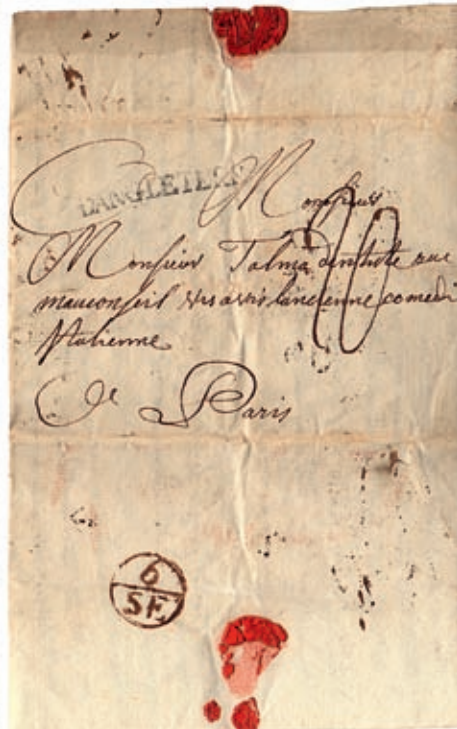 Monsieur
DANGLETERRE
Monsieur Talma dentiste rue
mauconseil vis avis lancienne comedi
Italienne
A Paris
20
6
SE